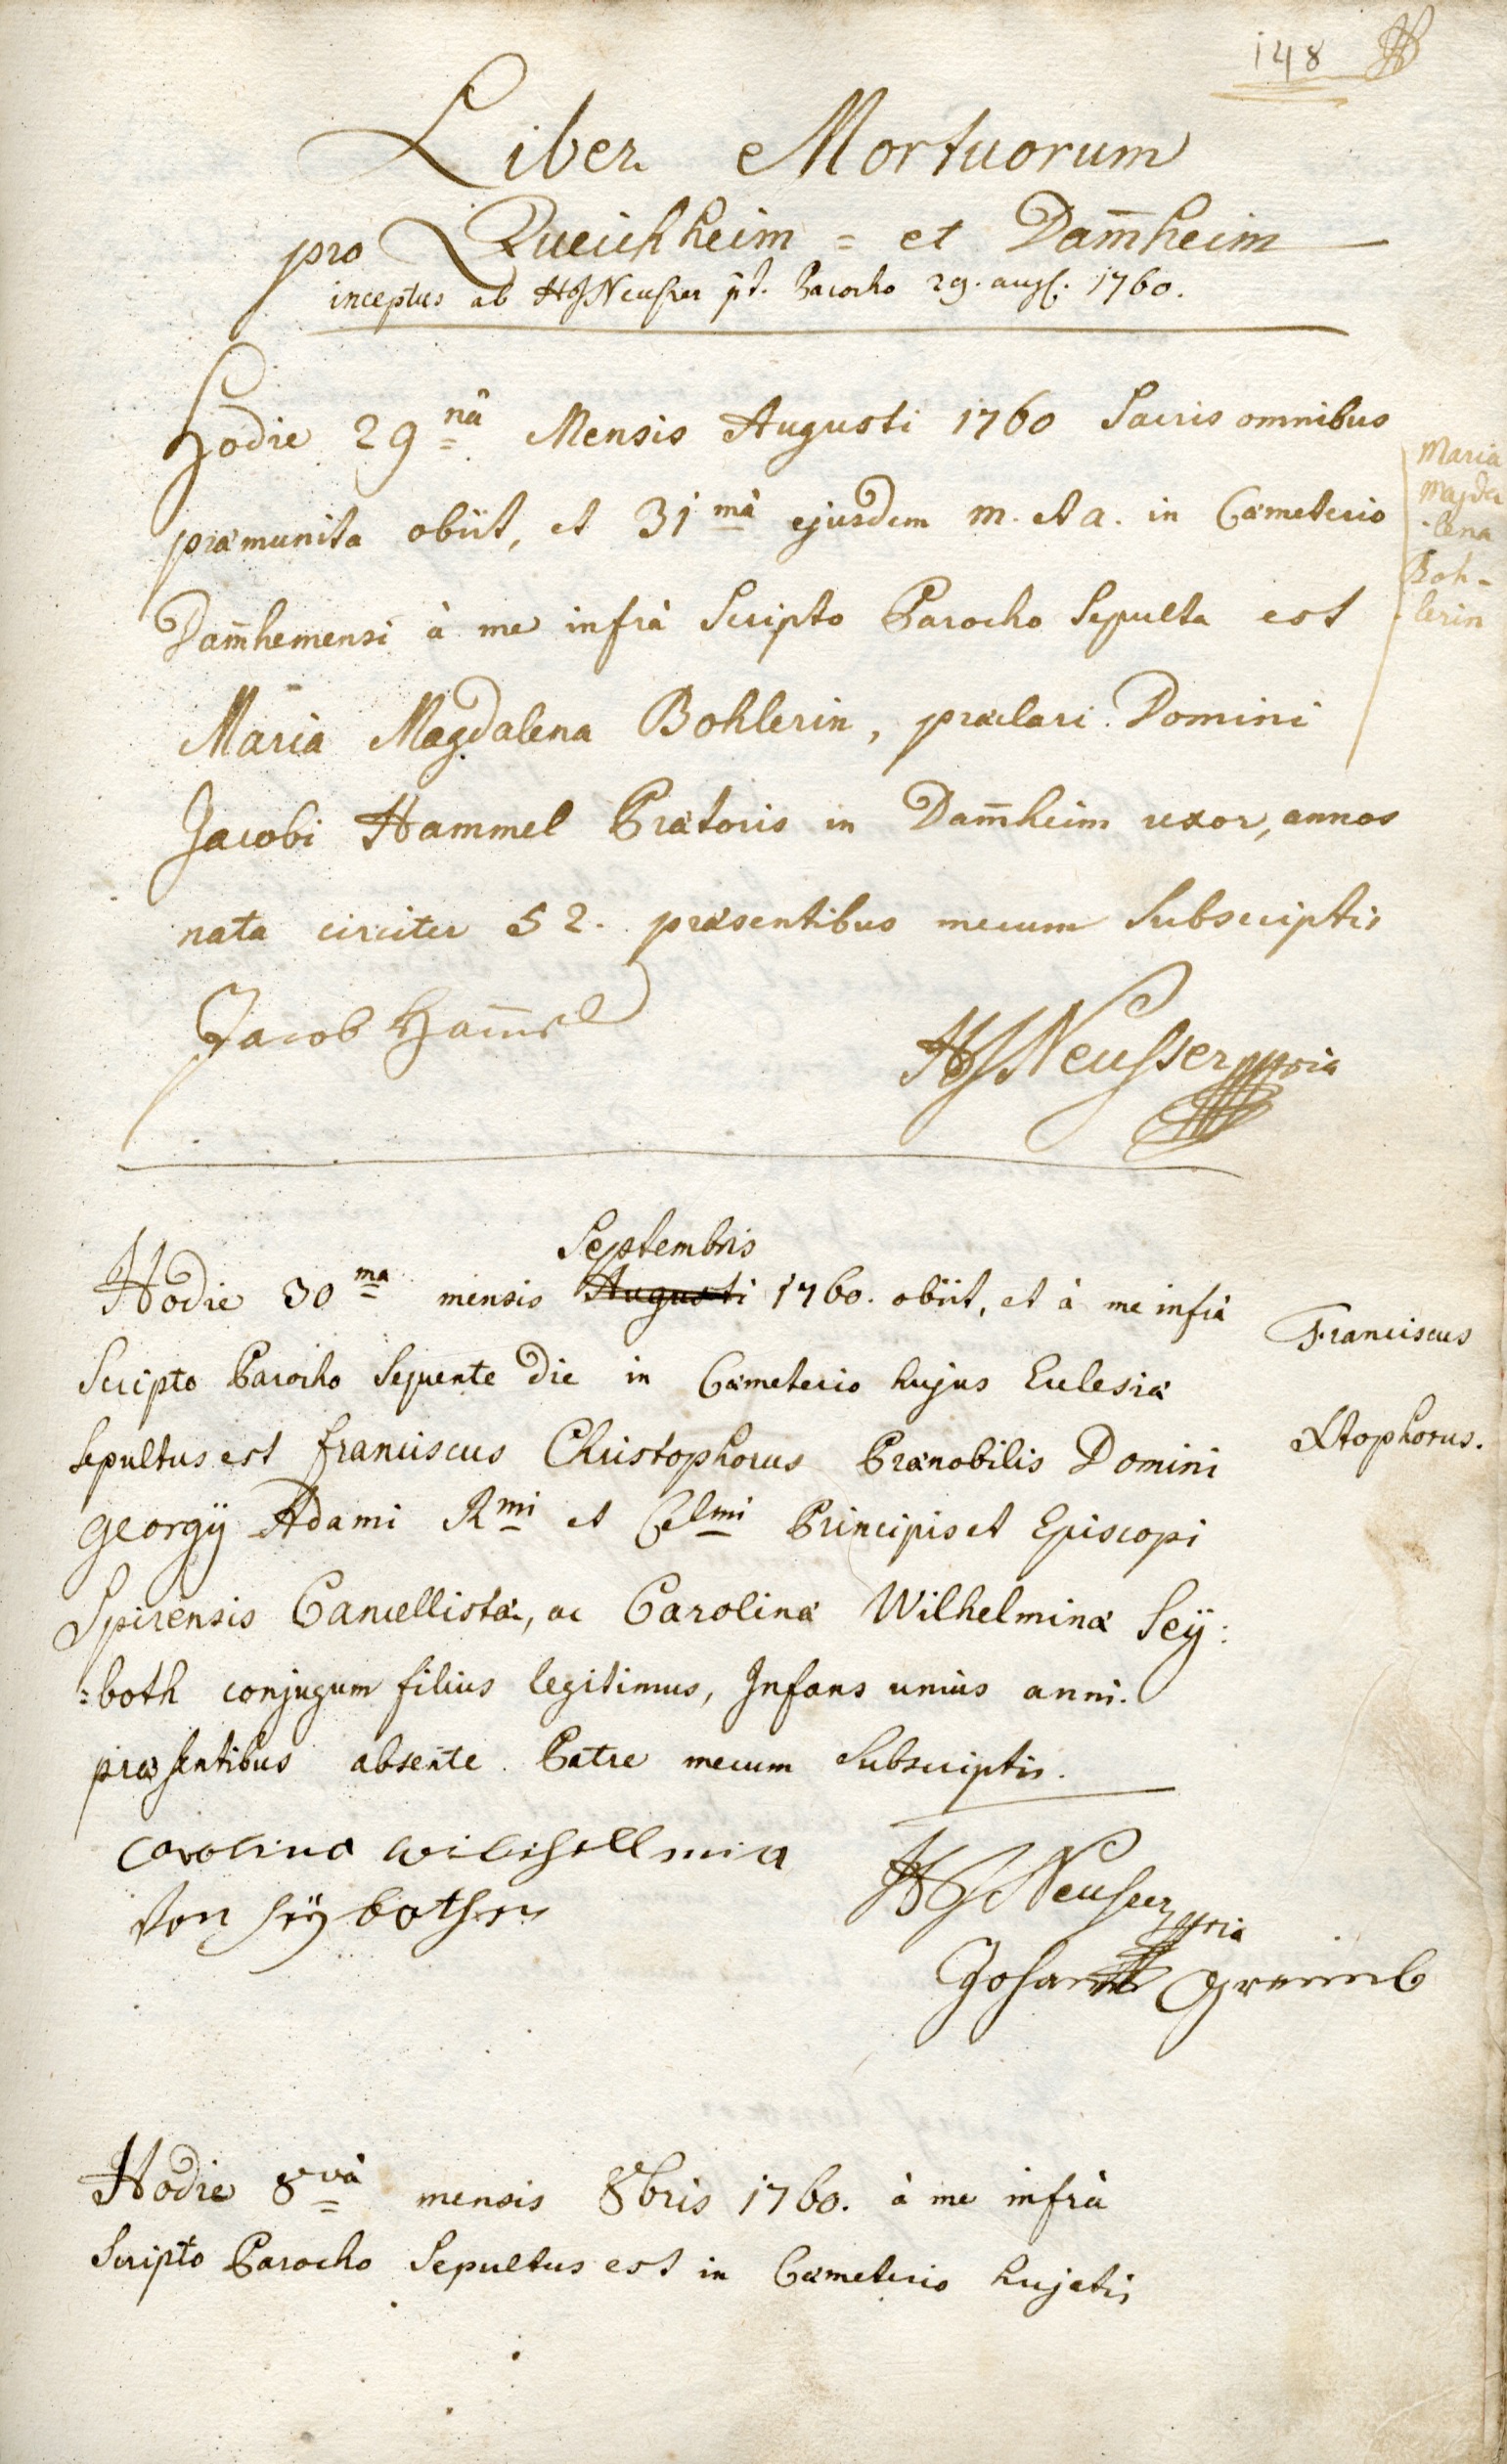 148
Liber Mortuorum
pro Queichheim = et Dam̄heim
inceptus ab HJNeusser p.t. Parocho 29. aug. 1760.
Hodie 29nâ Mensis Augusti 1760 Sacris omnibus
præmunita obiit, et 31mâ ejusdem m. et a. in Cæmeterio
Dam̄hemensi à me infrà Scripto Parocho Sepulta est
Maria Magdalena Bohlerin, præclari Domini
Jacobi Hammel Prætoris in Dam̄heim uxor, annos
nata circiter 52. præsentibus mecum Subscriptis
Maria
Magda
-lena
Boh-
lerin
Jacob Ham̄el
HJNeusser mpria
Septembris
Hodie 30ma mensis Augusti 1760. obiit, et à me infrà
Scripto Parocho Sequente die in Cæmeterio hujus Eclesiæ
Sepultus est franciscus Christophorus Prænobilis Domini
Georgÿ Adami Rmi et Celmi Principis et Episcopi
Spirensis Cancellistæ, ac Carolinæ Wilhelminæ Seÿ:
=both conjugum filius legitimus, Infans unius anni.
præsentibus absente Patre mecum Subscriptis.
Franciscus
Xtophorus.
Carolina
von Seÿbothen
HJNeusser mpria
Johann
Hodie 8vâ mensis 8bris 1760. à me infrà
Scripto Parocho Sepultus est in Cæmeterio hujatis